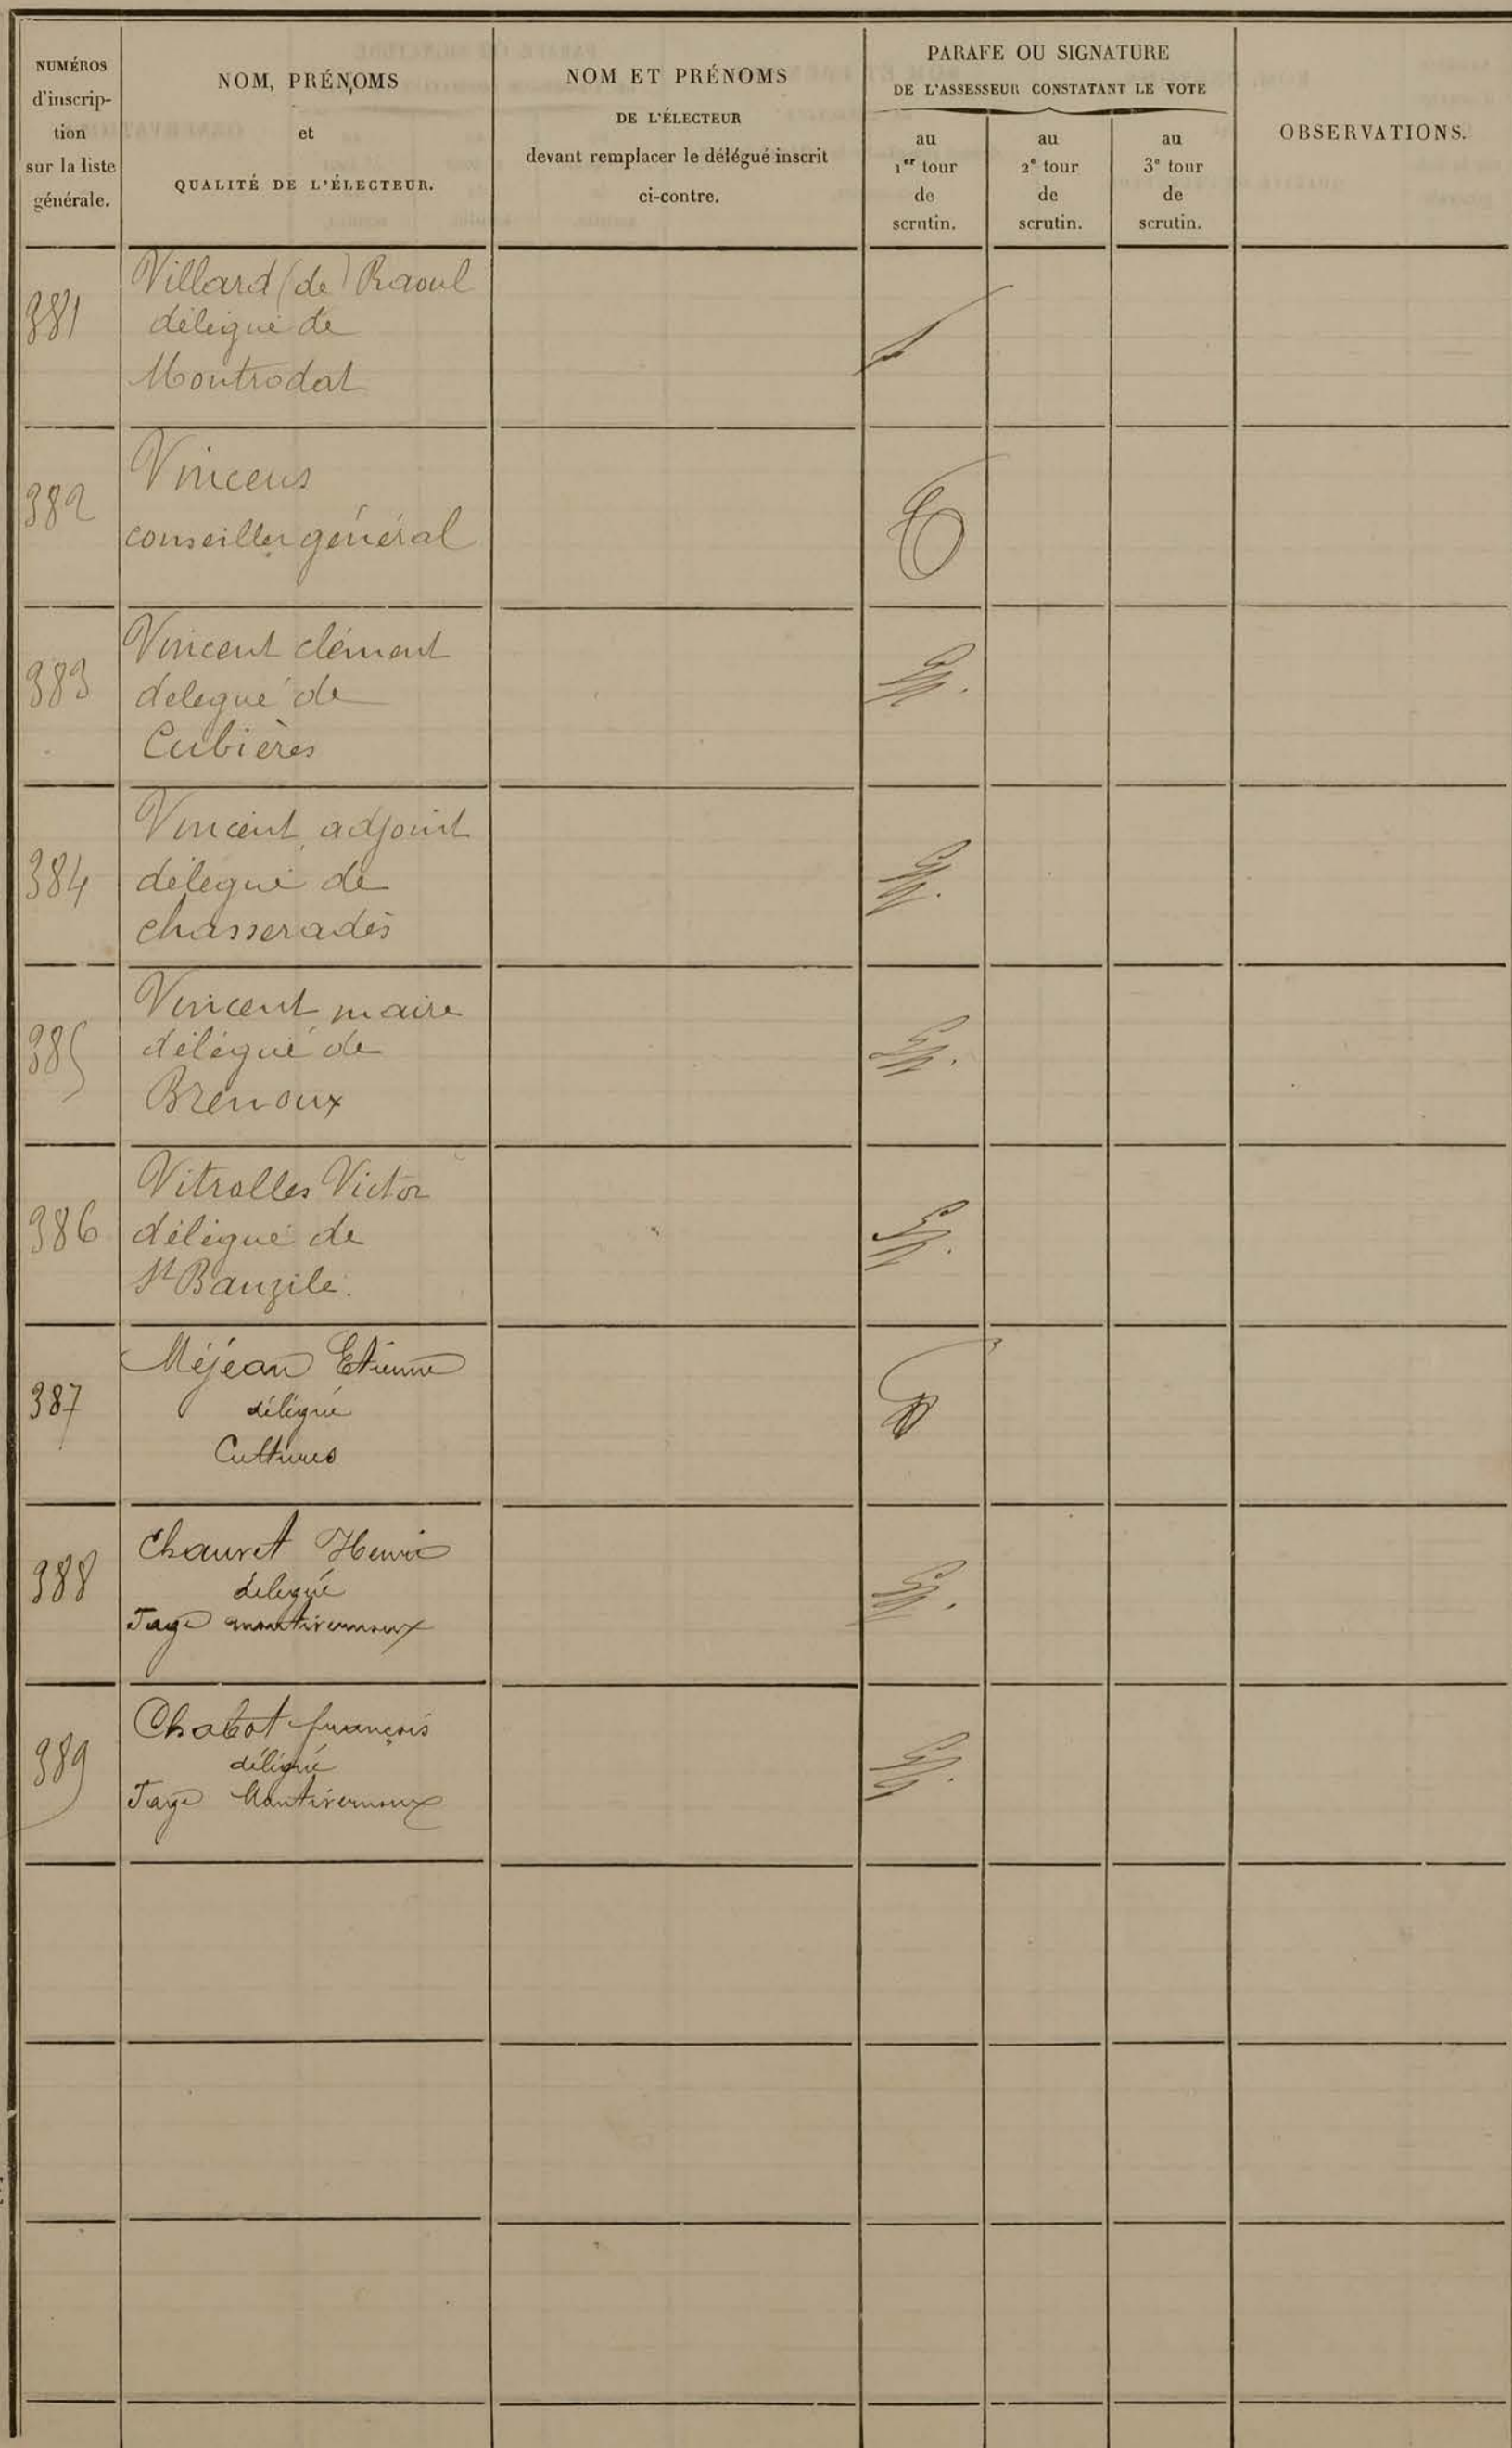 NUMÉROS
d'inscrip-
tion
sur la liste
générale.
NOM, PRÉNOMS
et
QUALITÉ DE L'ÉLECTEUR.
NOM ET PRÉNOMS
DE L'ÉLECTEUR
devant remplacer le délégué inscrit
ci-contre.
PARAFE OU SIGNATURE
DE L'ASSESSEUR CONSTATANT LE VOTE
au
1er tour
de
scrutin.
au
2e tour
de
scrutin.
au
3e tour
de
scrutin.
OBSERVATIONS.
381
Villard (de) Raoul
délégué de
Montrodat
382
Vincens
conseiller général
383
Vincent clément
delegué de
Cubières
384
Vincent, adjoint
délégué de
chasseradès
385
Vincent maire
délégué de
Brenoux
386
Vitrolles Victor
délégué de
St Bauzile.
387
Méjean Etienne
délégué
Cultures
388
Chauvet Henri
delegué
Fage montivernoux
389
Chabot françois
délégué
Fage Montivernoux